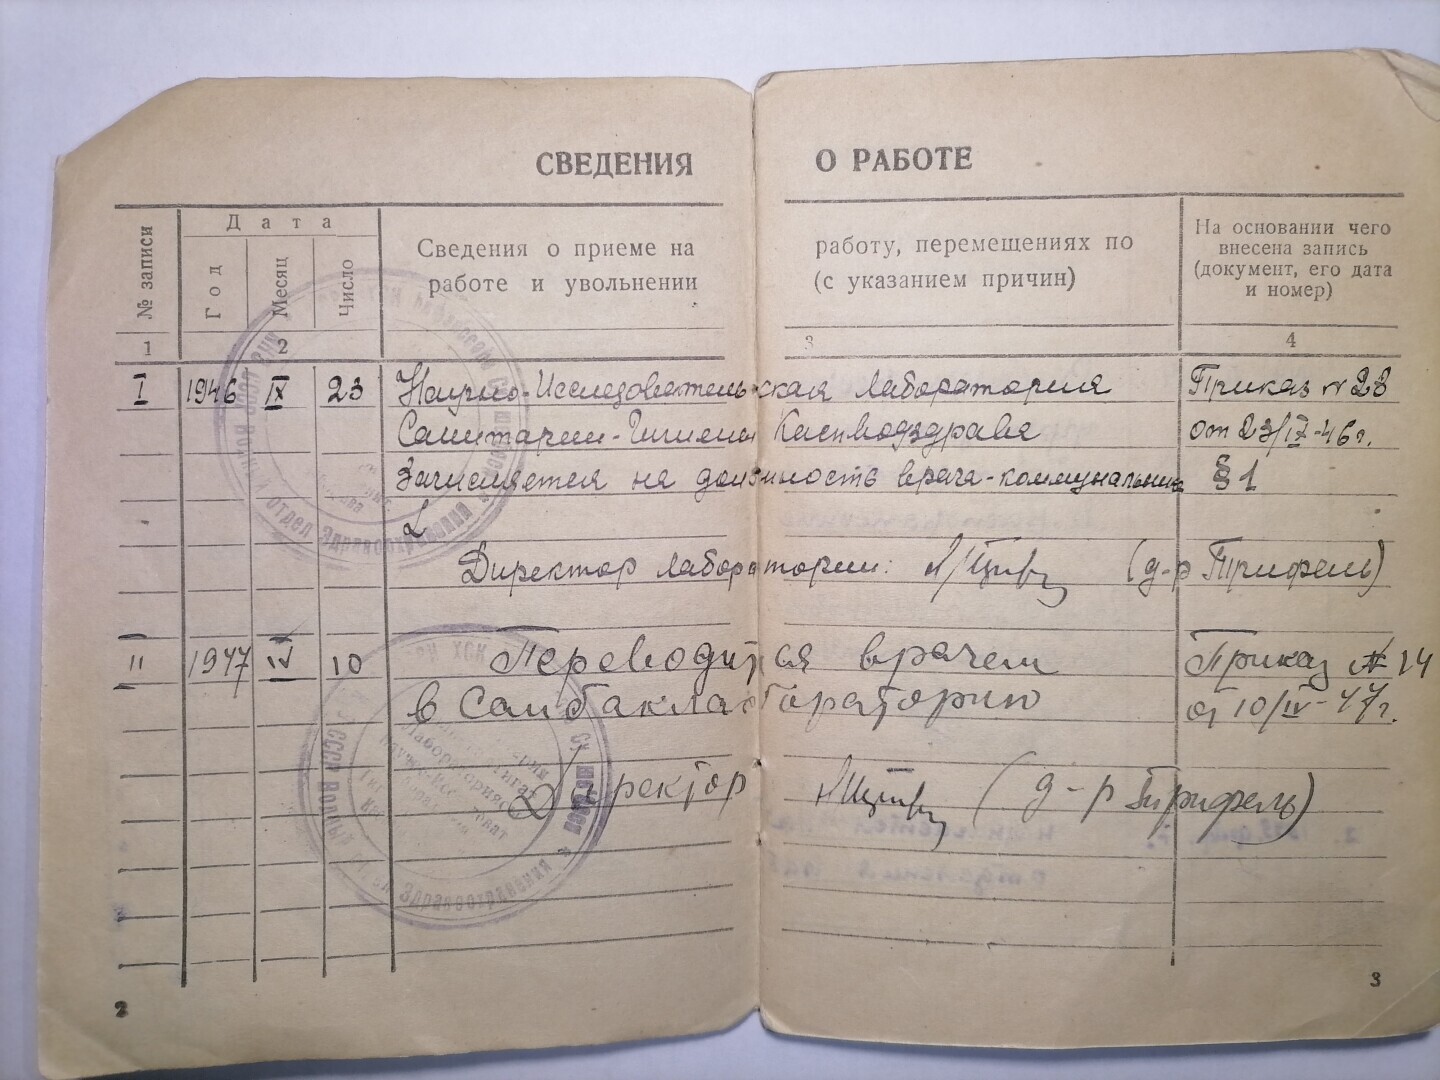 СВЕДЕНИЯ О РАБОТЕ
№ записи
Дата
Год
Месяц
Число
Сведения о приеме на работу, перемещениях по
работе и увольнении (с указанием причин)
На основании чего
внесена запись
(документ, его дата
и номер)
1 2 3 4
I 1946 IX 23 Научно-Исследовательская Лаборатория Приказ № 23
Санитарии-Гигиены Каспводздрава от 23/IX-46 г.
Зачисляется на должность врача-коммунальника § 1
Директор лаборатории: (д-р Трифель)
II 1947 IV 10 Переводится врачем Приказ № 14
в Санбаклабораторию от 10/IV-47 г.
Директор (д-р Трифель)
Отдел Здравоохранения
Здравоохранения
2
3